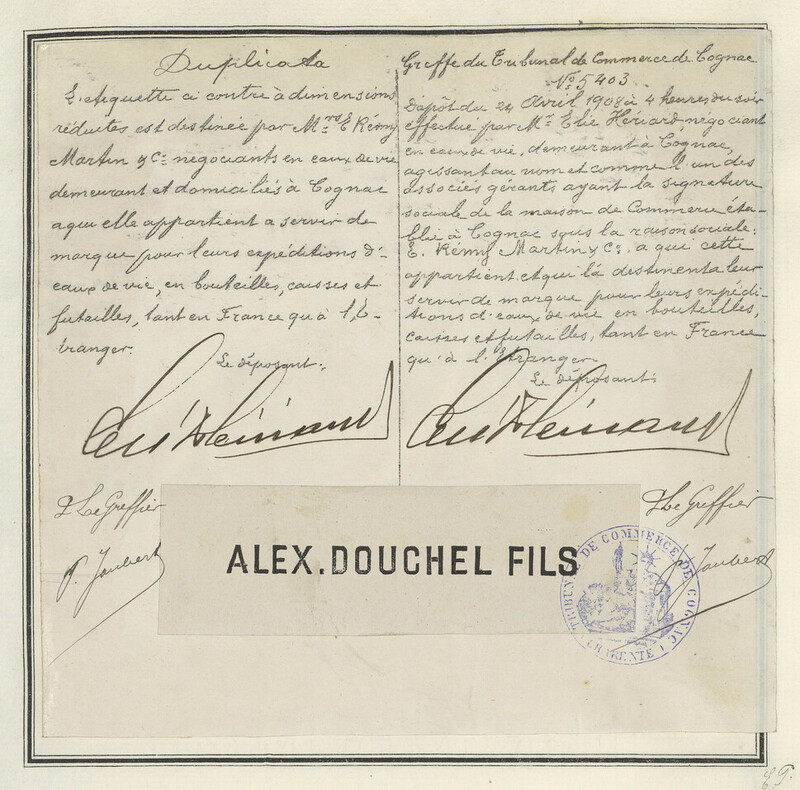 Duplicata
L'étiquette ci contre à dimensions
réduites est destinée par Mrs E. Rémy
Martin & Cie négociants en eaux de vie
demeurant et domiciliés à Cognac
a qui elle appartient a servir de
marque pour leurs expéditions d'-
eaux de vie, en bouteilles, caisses et
futailles, tant en France qu'à l'É-
tranger.
Le déposant:
P Le Greffier
P. Joubert
Greffe du Tribunal de Commerce de Cognac
No. 5403
Dépôt du 24 Avril 1908 à 4 heures du soir
effectué par Mr. Elie Hériard, négociant
en eaux de vie, demeurant à Cognac,
agissant au nom et comme l'un des
associés gérants ayant la signature
sociale de la maison de Commerce éta-
blie à Cognac sous la raison sociale:
E. Rémy Martin & Co. a qui cette
appartient et qui la destine à leur
servir de marque pour leurs expédi-
tions d'eaux de vie en bouteilles,
caisses et futailles, tant en France
qu'à l'Étranger
Le déposant:
P Le Greffier
P. Joubert
ALEX. DOUCHEL FILS
TRIBUNAL DE COMMERCE DE COGNAC
(CHARENTE)